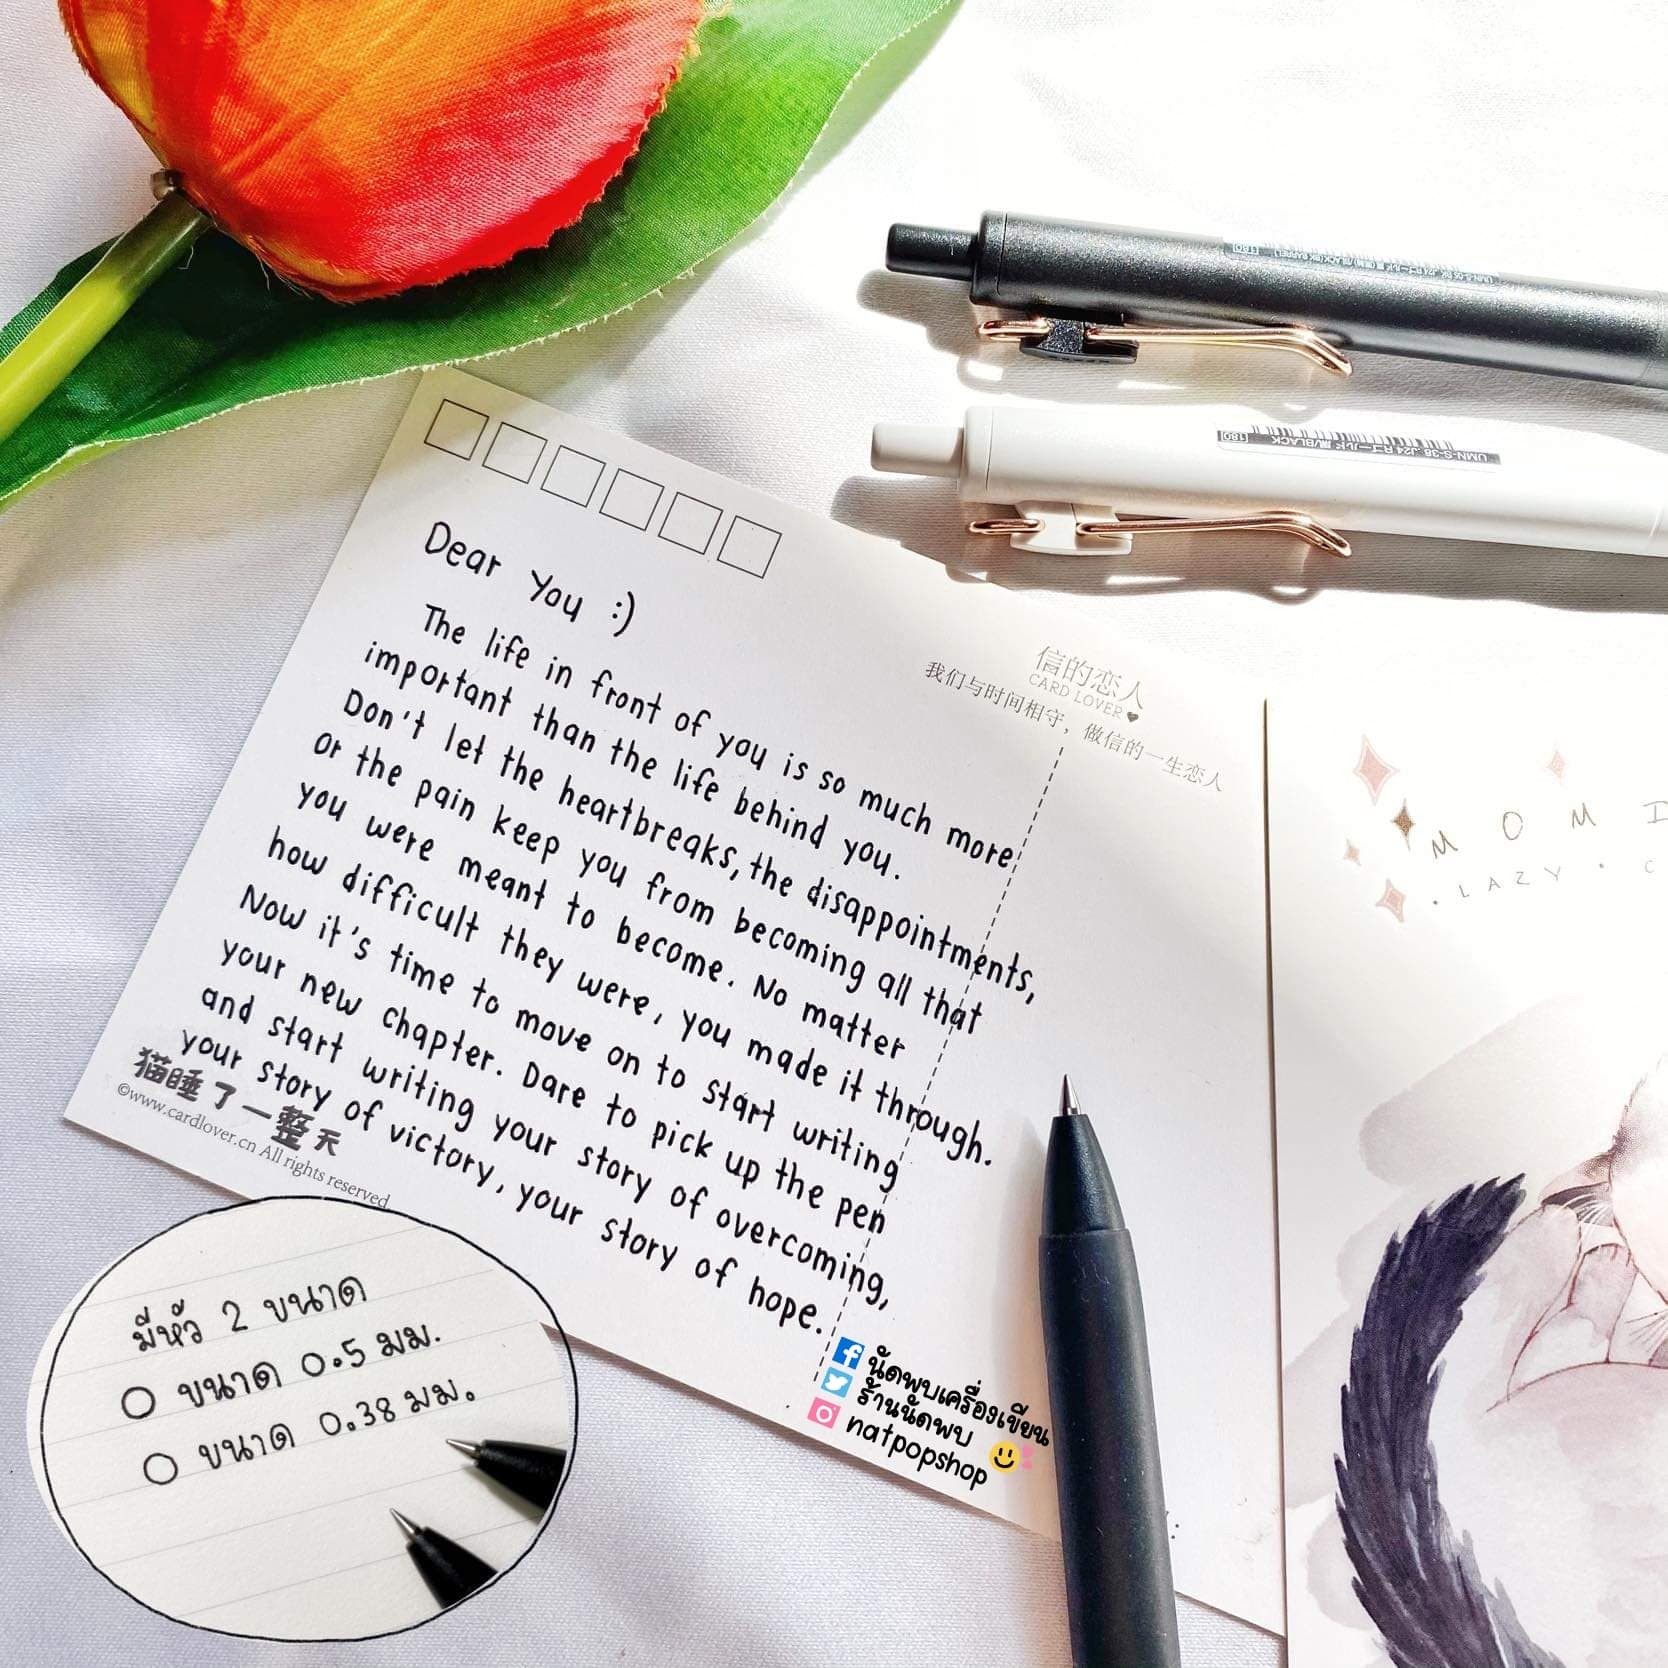 Dear You :)
The life in front of you is so much more
important than the life behind you.
Don't let the heartbreaks, the disappointments,
or the pain keep you from becoming all that
you were meant to become. No matter
how difficult they were, you made it through.
Now it's time to move on to start writing
your new chapter. Dare to pick up the pen
and start writing your story of overcoming,
your story of victory, your story of hope.
信的恋人
CARD LOVER
我们与时间相守，做信的一生恋人
猫睡了一整天
©www.cardlover.cn All rights reserved
นัดพบเครื่องเขียน
ร้านนัดพบ
natpopshop
มีหัว 2 ขนาด
ขนาด 0.5 มม.
ขนาด 0.38 มม.
UMN-S-38 J24 Rゴールド 黒/BLACK [180]
MOM
LAZY